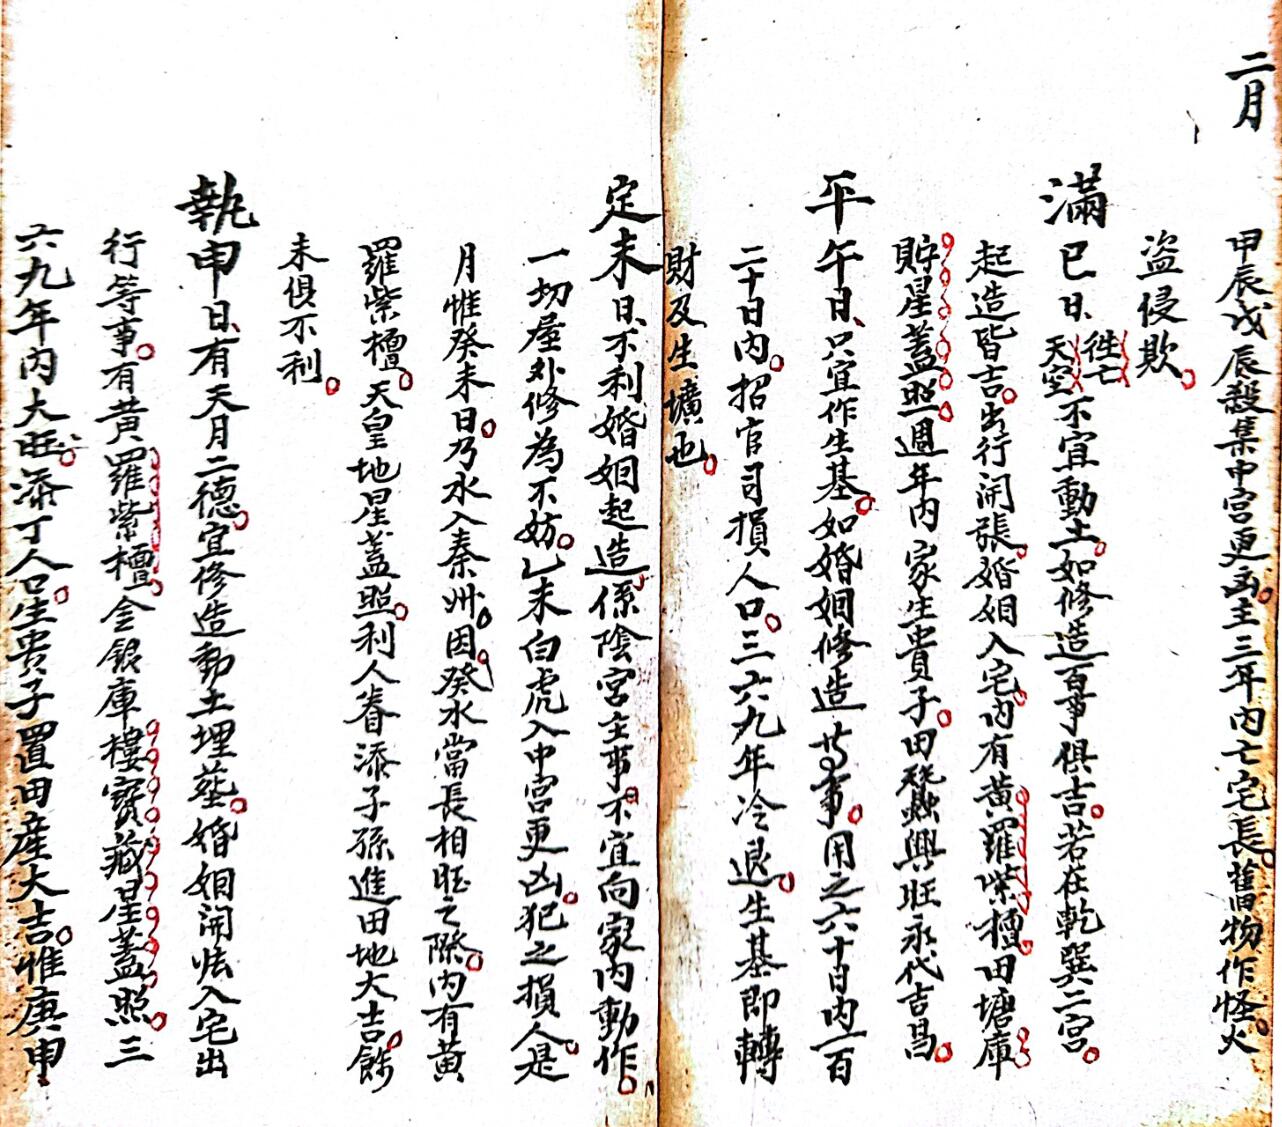 二月
甲辰戊辰殺集中宮更凶主三年内亡宅長舊物作怪火
盜侵欺
滿巳日往亡天空不宜動土如修造百事俱吉若在乾巽二宫
起造皆吉出行開張婚姻入宅内有黄羅紫檀田塘庫
貯星蓋照週年内家生貴子田蠶興旺永代吉昌
平午日只宜作生基如婚姻修造等事用之六十日内一百
二十日内招官司損人口三六九年冷退生基即轉
財及生壙也
定未日不利婚姻起造係陰宮主事不宜向家内動作
一切屋外修為不妨乙未白虎入中宮更凶犯之損人是
月惟癸未日乃水入秦州因癸水當長相旺之際内有黄
羅紫檀天皇地星蓋照利人眷添子孫進田地大吉餘
未俱不利
執申日有天月二德宜修造動土埋葬婚姻開張入宅出
行等事有黄羅紫檀金銀庫樓寶藏星蓋照三
六九年内大旺添丁人口生貴子置田産大吉惟庚申